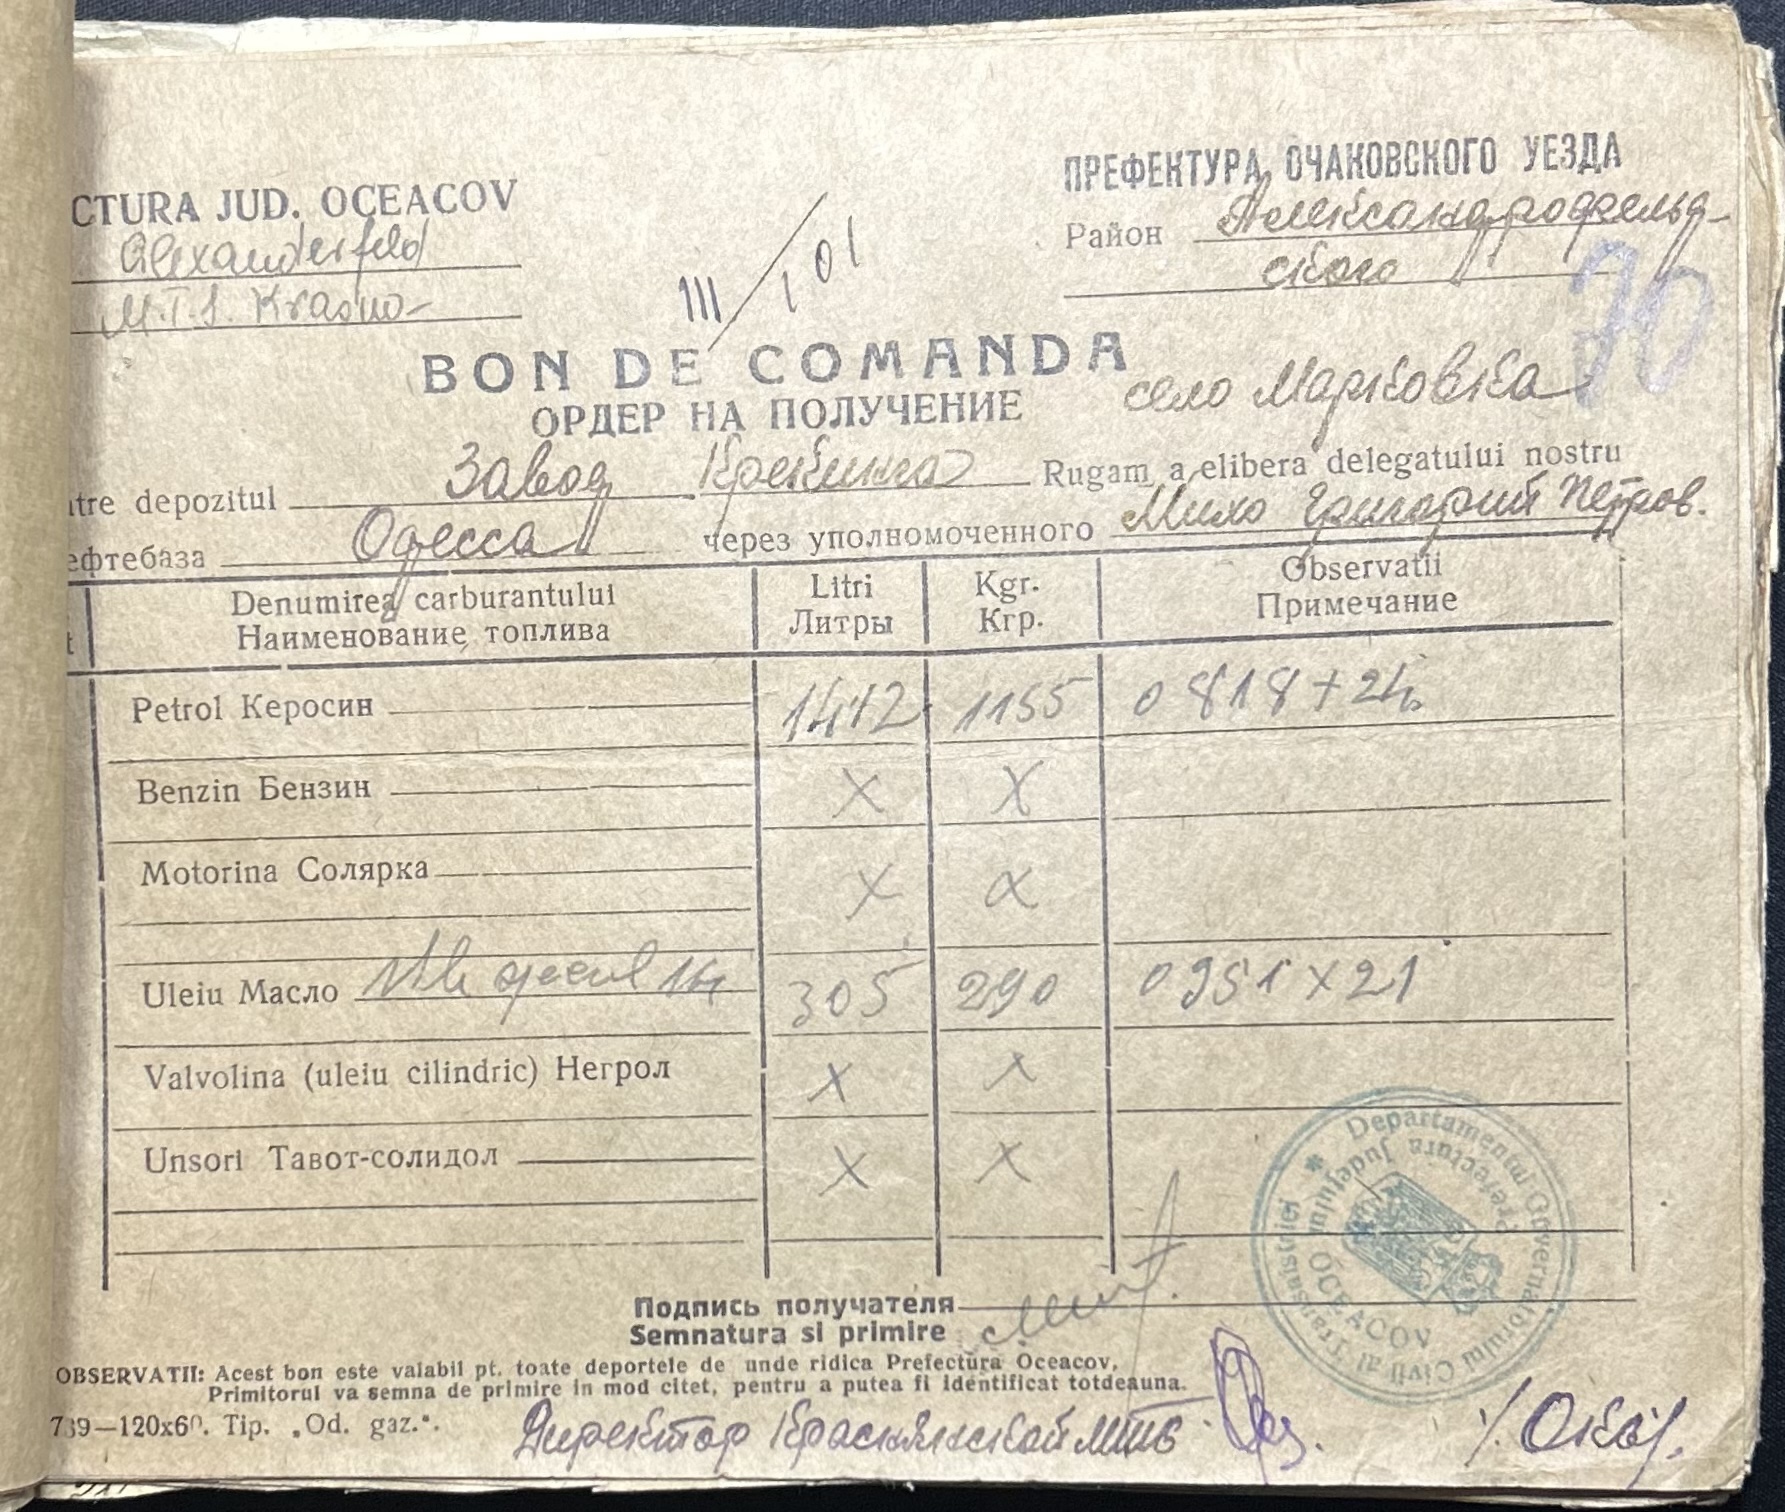 CTURA JUD. OCEACOV
Alexanderfeld
M.T.S. Krasno-
ПРЕФЕКТУРА ОЧАКОВСКОГО УЕЗДА
Район Александрофельд-
ского
70
III/101
BON DE COMANDA
ОРДЕР НА ПОЛУЧЕНИЕ
село Марковка
tre depozitul Завод Крекинга Rugam a elibera delegatului nostru
ефтебаза Одесса через уполномоченного Мило Григорий Петров.
Denumirea carburantului Litri Kgr. Observatii
t Наименование топлива Литры Кгр. Примечание
Petrol Керосин 1412 1155 0818+24
Benzin Бензин X X
Motorina Солярка X X
Uleiu Масло 305 290 0951x21
Valvolina (uleiu cilindric) Негрол X X
Unsori Тавот-солидол X X
Departamentul Guvernatorului Civil al Transnistriei
Prefectura Județului
OCEACOV
Подпись получателя
Semnatura si primire
OBSERVATII: Acest bon este valabil pt. toate deportele de unde ridica Prefectura Oceacov.
Primitorul va semna de primire in mod citet, pentru a putea fi identificat totdeauna.
739—120x60. Tip. „Od. gaz.".
Директор Краснянской МТС